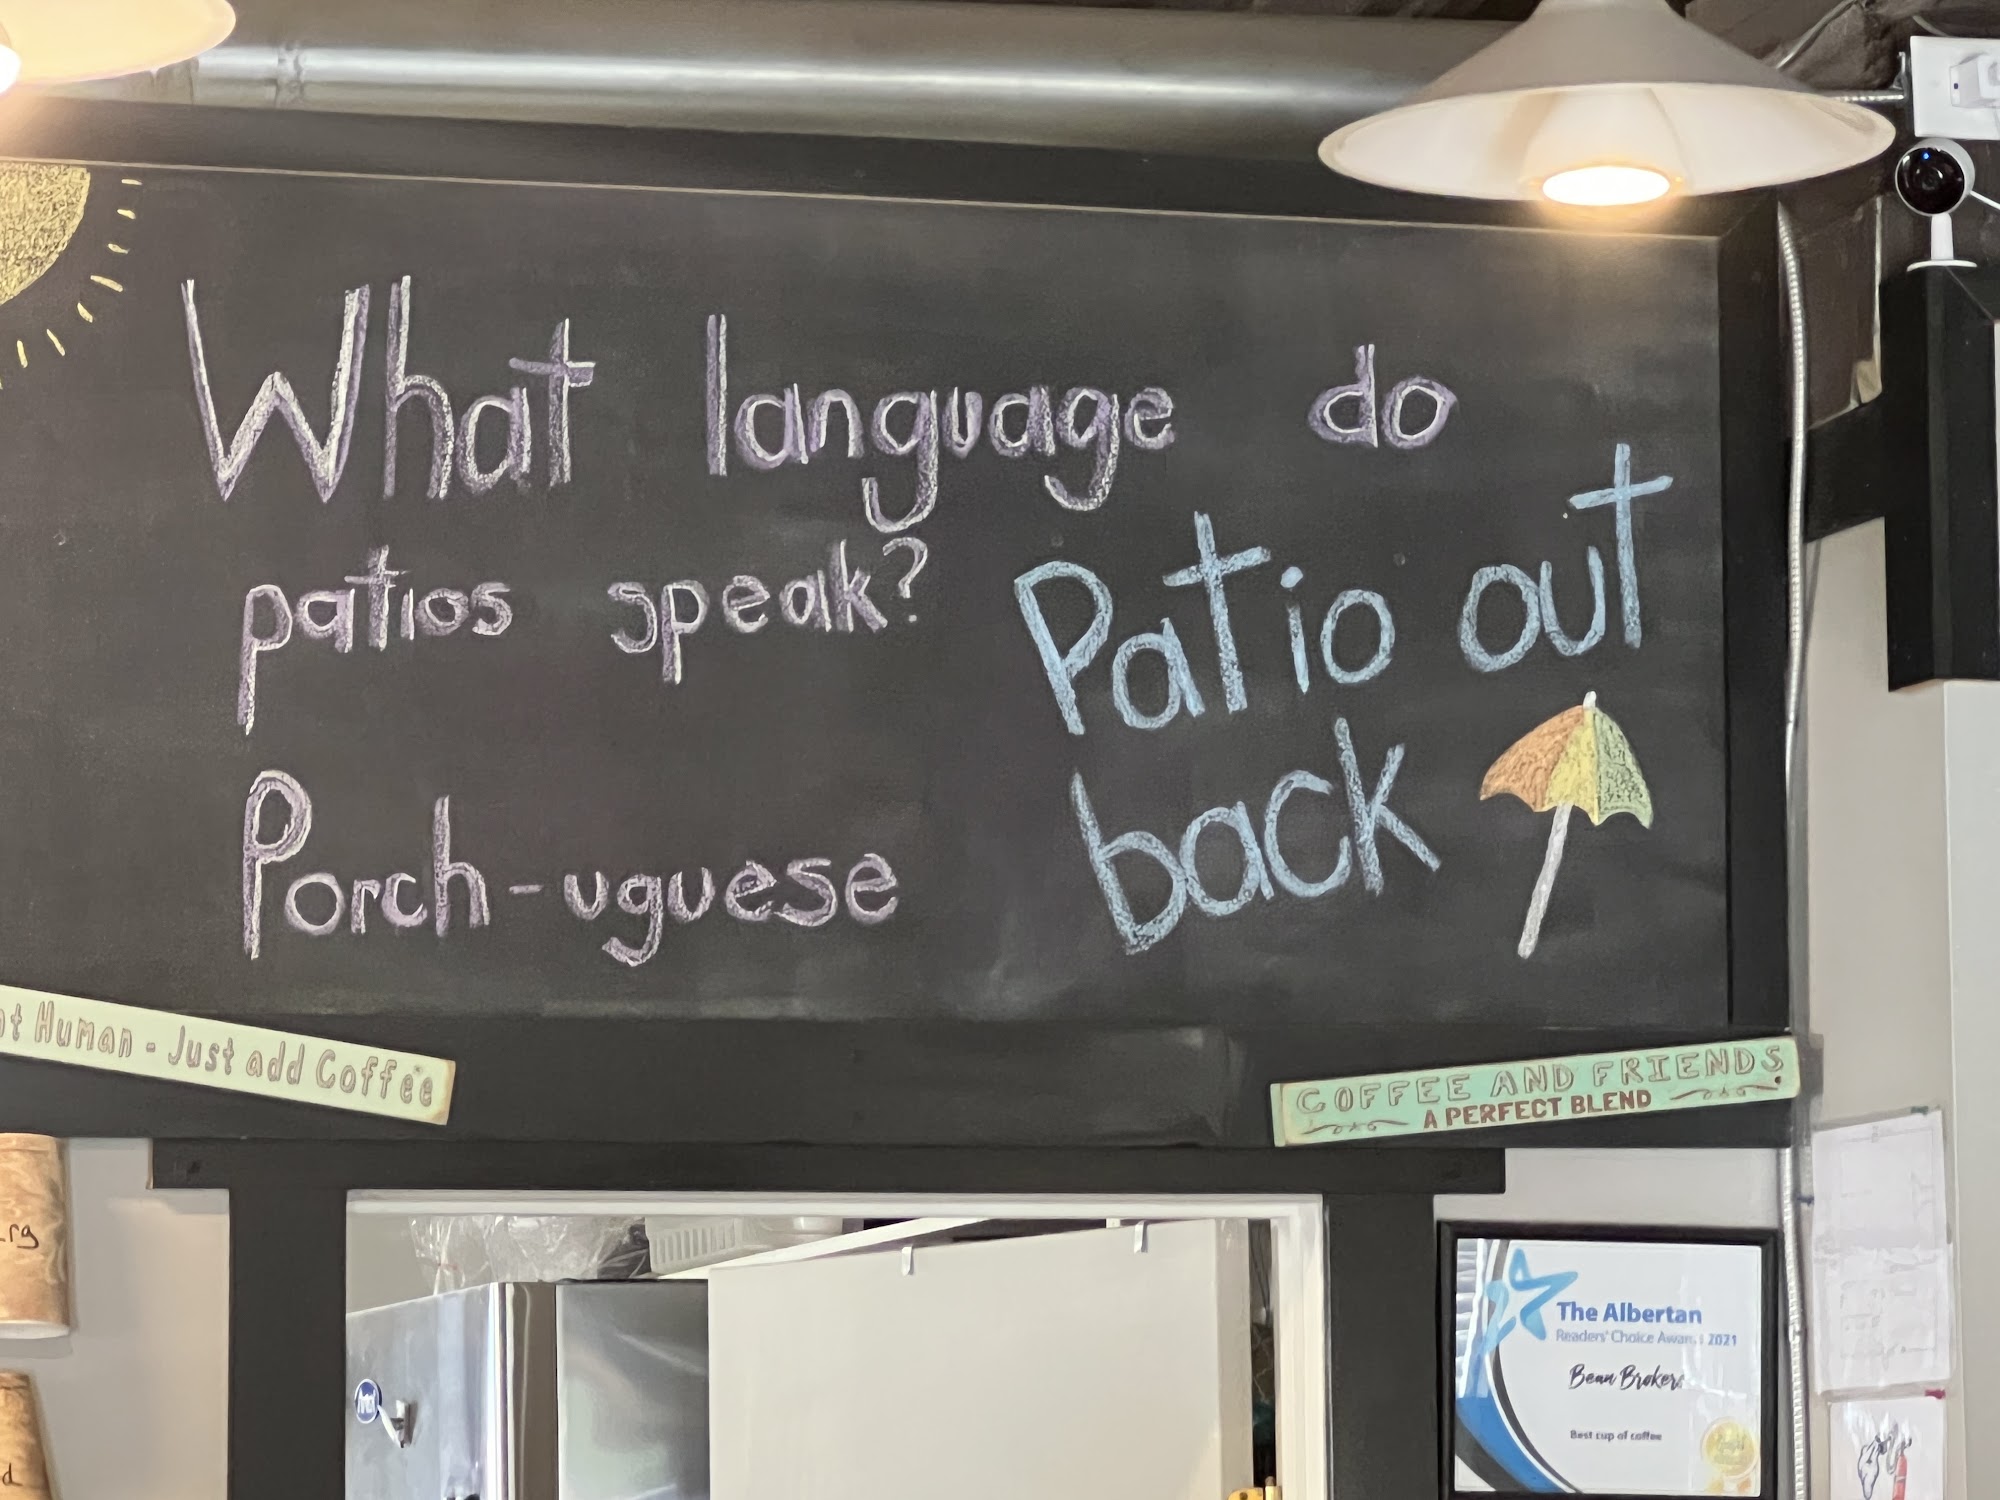 What language do
patios speak?
Porch-uguese
Patio out
back
Human - Just add Coffee
COFFEE AND FRIENDS
A PERFECT BLEND
The Albertan
Readers' Choice Award 2021
Bean Brokers
Best cup of coffee